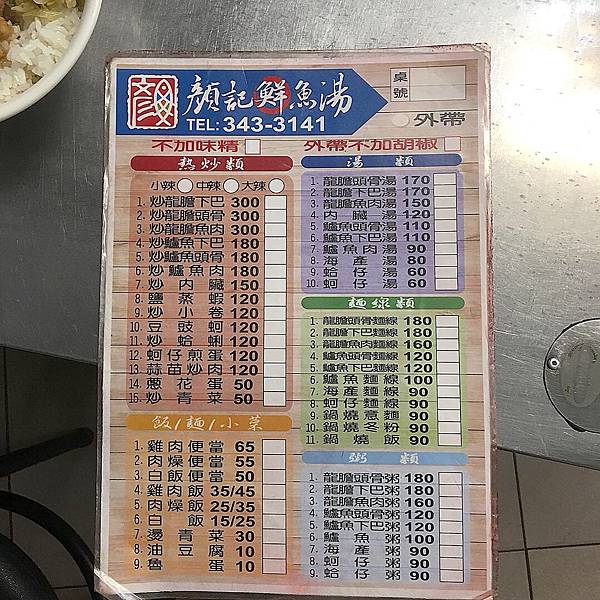 顏記鮮魚湯
TEL: 343-3141
桌號
外帶
不加味精
外帶不加胡椒
熱炒類
小辣 中辣 大辣
1. 炒龍膽下巴 300
2. 炒龍膽頭骨 300
3. 炒龍膽魚肉 300
4. 炒鱸魚下巴 180
5. 炒鱸魚頭骨 180
6. 炒鱸魚肉 180
7. 炒內臟 150
8. 鹽蒸蝦 120
9. 炒小卷 120
10. 豆豉蚵 120
11. 炒蛤蜊 120
12. 蚵仔煎蛋 120
13. 蒜苗炒肉 120
14. 蔥花蛋 50
15. 炒青菜 50
飯/麵/小菜
1. 雞肉便當 65
2. 肉燥便當 55
3. 白飯便當 50
4. 雞肉飯 35/45
5. 肉燥飯 25/35
6. 白飯 15/25
7. 燙青菜 30
8. 油豆腐 10
9. 魯蛋 10
湯類
1. 龍膽頭骨湯 170
2. 龍膽下巴湯 170
3. 龍膽魚肉湯 150
4. 內臟湯 120
5. 鱸魚頭骨湯 110
6. 鱸魚下巴湯 110
7. 鱸魚肉湯 90
8. 海產湯 80
9. 蛤仔湯 60
10. 蚵仔湯 60
麵線類
1. 龍膽頭骨麵線 180
2. 龍膽下巴麵線 180
3. 龍膽魚肉麵線 160
4. 鱸魚頭骨麵線 120
5. 鱸魚下巴麵線 120
6. 鱸魚麵線 100
7. 海產麵線 90
8. 蚵仔麵線 90
9. 鍋燒意麵 90
10. 鍋燒冬粉 90
11. 鍋燒飯 90
粥類
1. 龍膽頭骨粥 180
2. 龍膽下巴粥 180
3. 龍膽魚肉粥 160
4. 鱸魚頭骨粥 120
5. 鱸魚下巴粥 120
6. 鱸魚粥 100
7. 海產粥 90
8. 蚵仔粥 90
9. 蛤仔粥 90